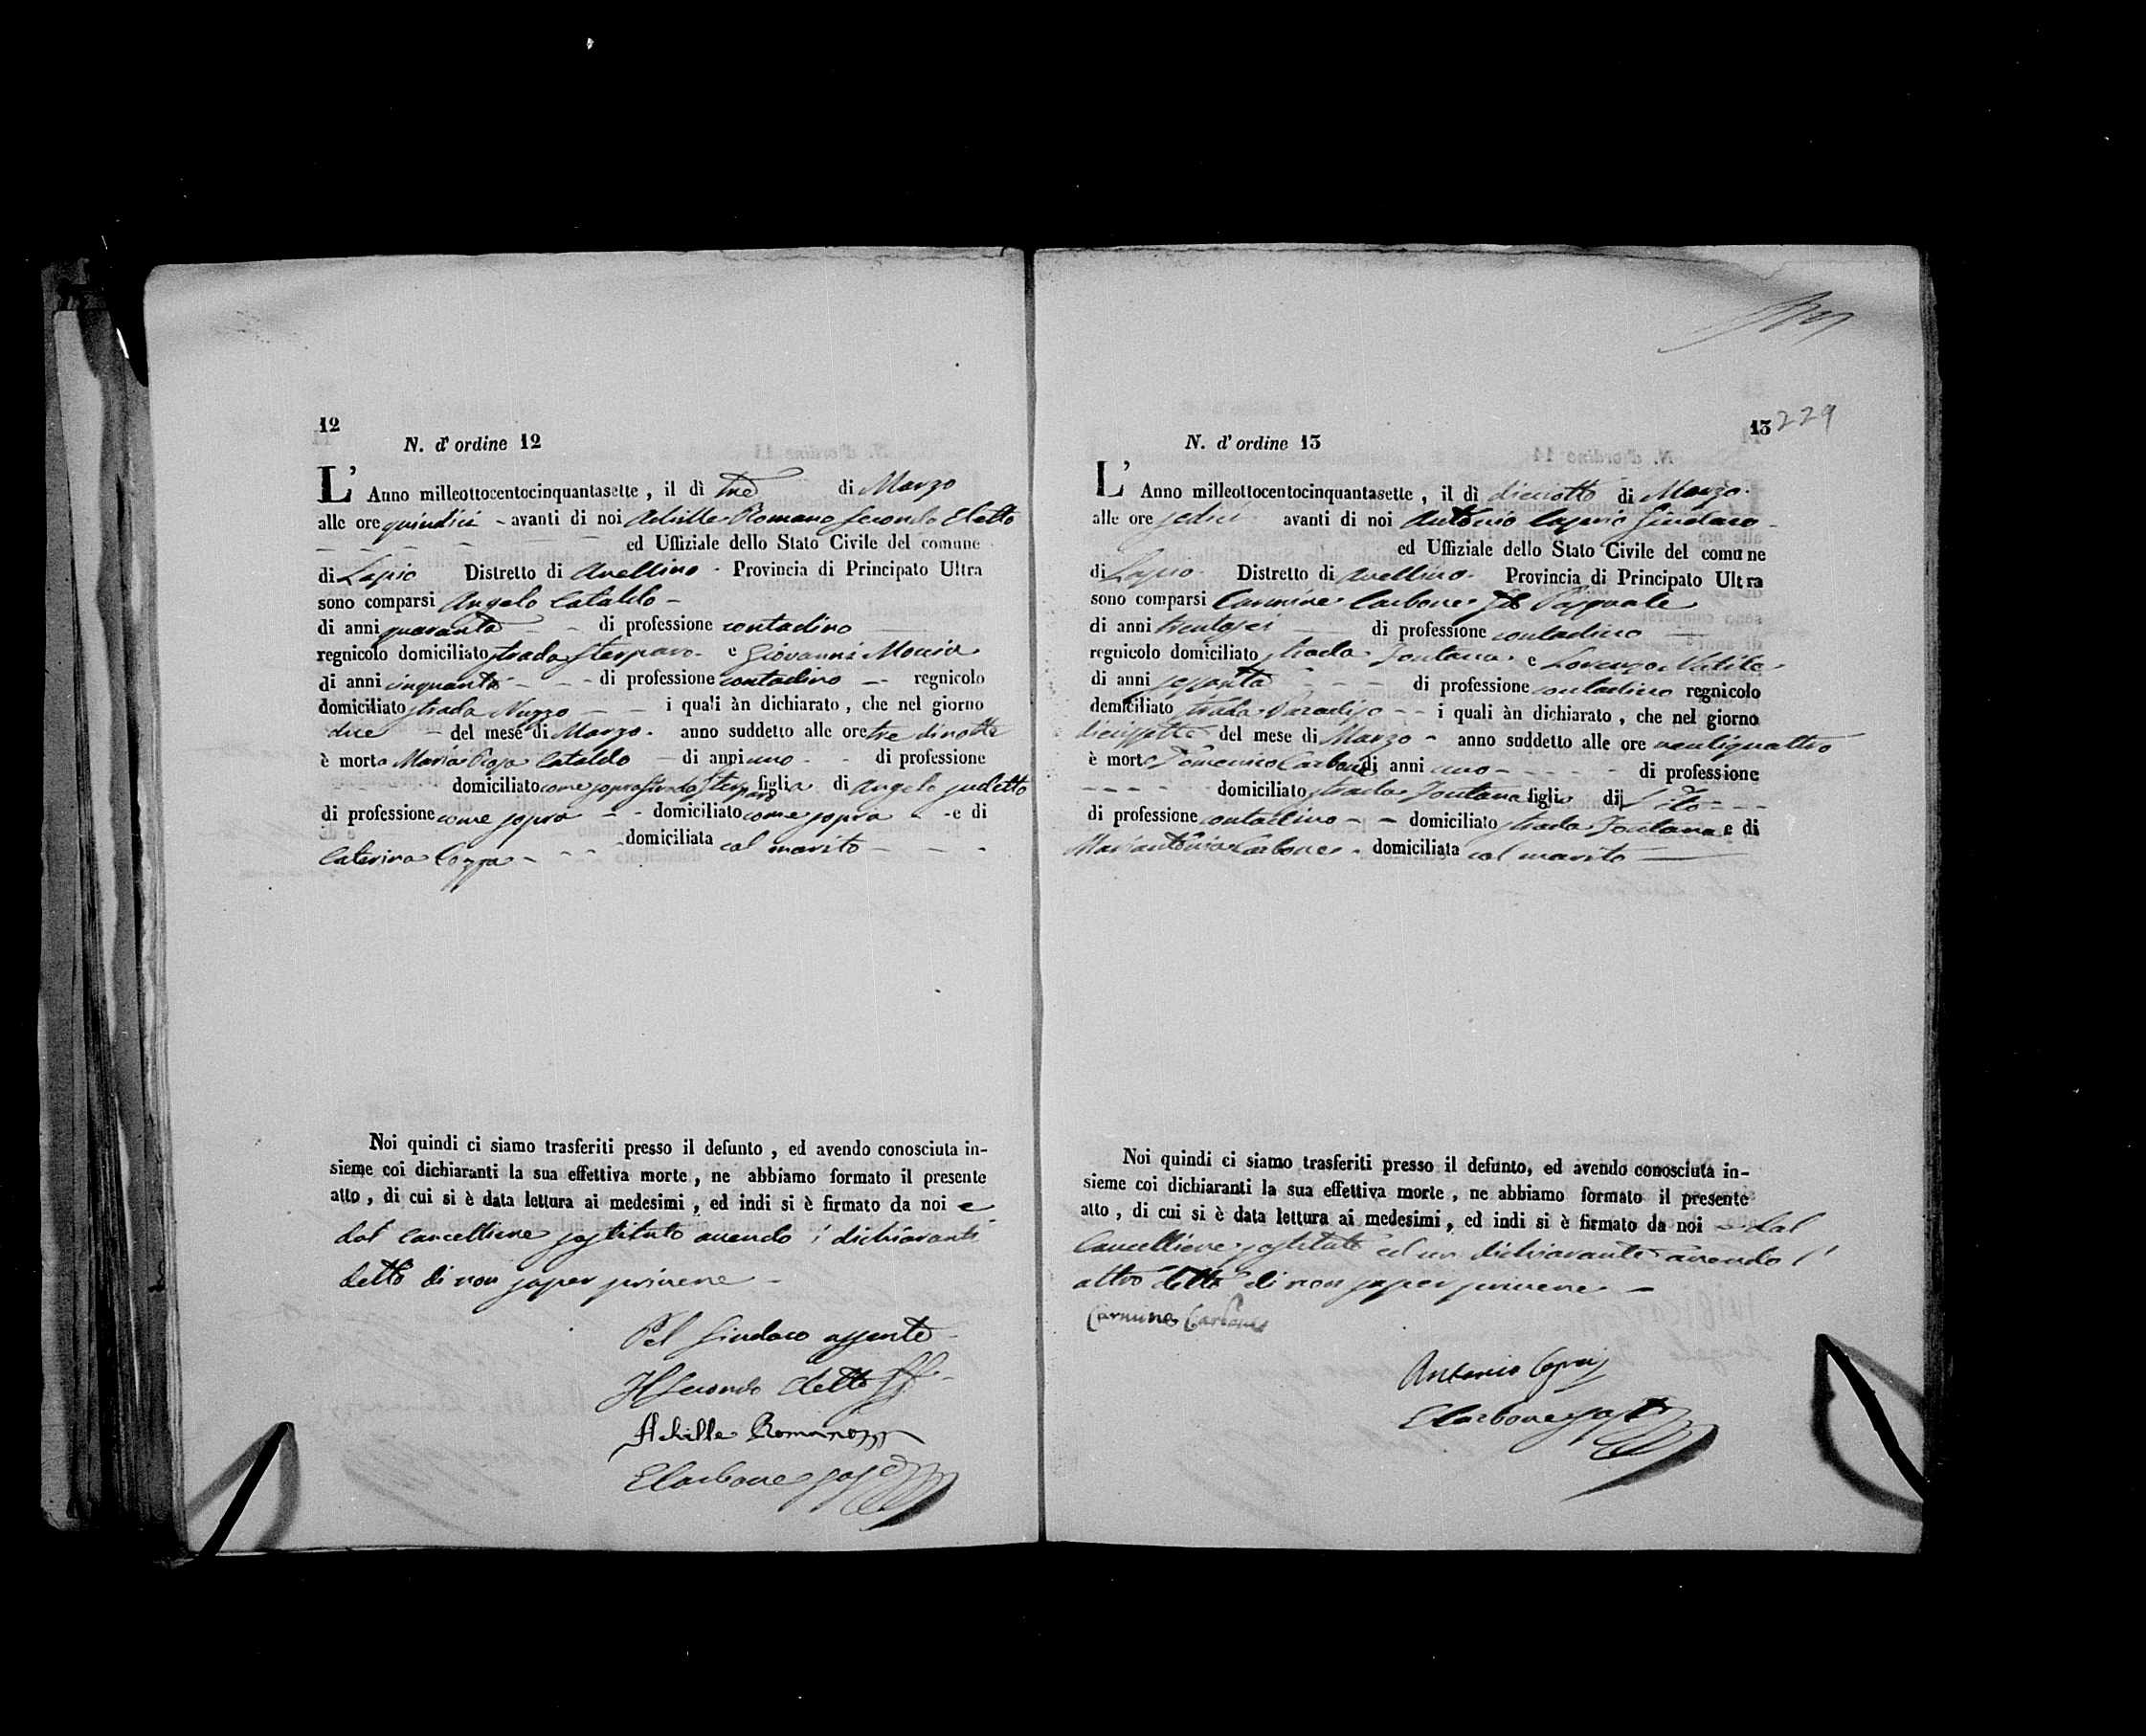 12
N. d' ordine 12
L' Anno milleottocentocinquantasette , il dì tre di Marzo
alle ore quindici - avanti di noi Achille Romano Secondo Eletto
ed Uffiziale dello Stato Civile del comune
di Lapio Distretto di Avellino - Provincia di Principato Ultra
sono comparsi Angelo Cataldo -
di anni quaranta - - di professione contadino
regnicolo domiciliato strada Sterparo - e Giovanni
di anni cinquanta - - - di professione contadino - regnicolo
domiciliato strada Nuzzo - - i quali àn dichiarato , che nel giorno
due - del mese di Marzo - anno suddetto alle ore tre di notte
è morta Maria Rosa Cataldo - di anni uno - - di professione
domiciliato come sopra strada Sterparo figlia di Angelo sudetto
di professione come sopra - - domiciliato come sopra - - e di
Caterina - - - domiciliata col marito - - -
Noi quindi ci siamo trasferiti presso il defunto , ed avendo conosciuta in-
sieme coi dichiaranti la sua effettiva morte , ne abbiamo formato il presente
atto , di cui si è data lettura ai medesimi , ed indi si è firmato da noi e
dal Cancelliere sostituto avendo i dichiaranti
detto di non saper scrivere -
Pel Sindaco assente -
Il Secondo Eletto
Achille Romano
E Carbone sost
13 229
N. d' ordine 13
L' Anno milleottocentocinquantasette , il dì diciotto di Marzo -
alle ore sedici avanti di noi Antonio Sindaco -
ed Uffiziale dello Stato Civile del comune
di Lapio - Distretto di Avellino - Provincia di Principato Ultra
sono comparsi Carmine Carbone di Pasquale
di anni trentasei di professione contadino
regnicolo domiciliato strada Fontana - e Lorenzo
di anni sessanta - - - di professione contadino regnicolo
domiciliato strada Paradiso - - i quali àn dichiarato , che nel giorno
diciassette del mese di Marzo - anno suddetto alle ore ventiquattro
è morto Domenico Carbone di anni uno - - - - - di professione
- - - - - domiciliato strada Fontana figlio di Vito - - -
di professione contadino - - domiciliato strada Fontana e di
Mariantonia Carbone - domiciliata col marito
Noi quindi ci siamo trasferiti presso il defunto, ed avendo conosciuta in-
sieme coi dichiaranti la sua effettiva morte , ne abbiamo formato il presente
atto , di cui si è data lettura ai medesimi , ed indi si è firmato da noi - dal
Cancelliere sostituto ed un dichiarante avendo l'
altro detto di non saper scrivere -
Carmine Carbone
Antonio
E Carbone sost